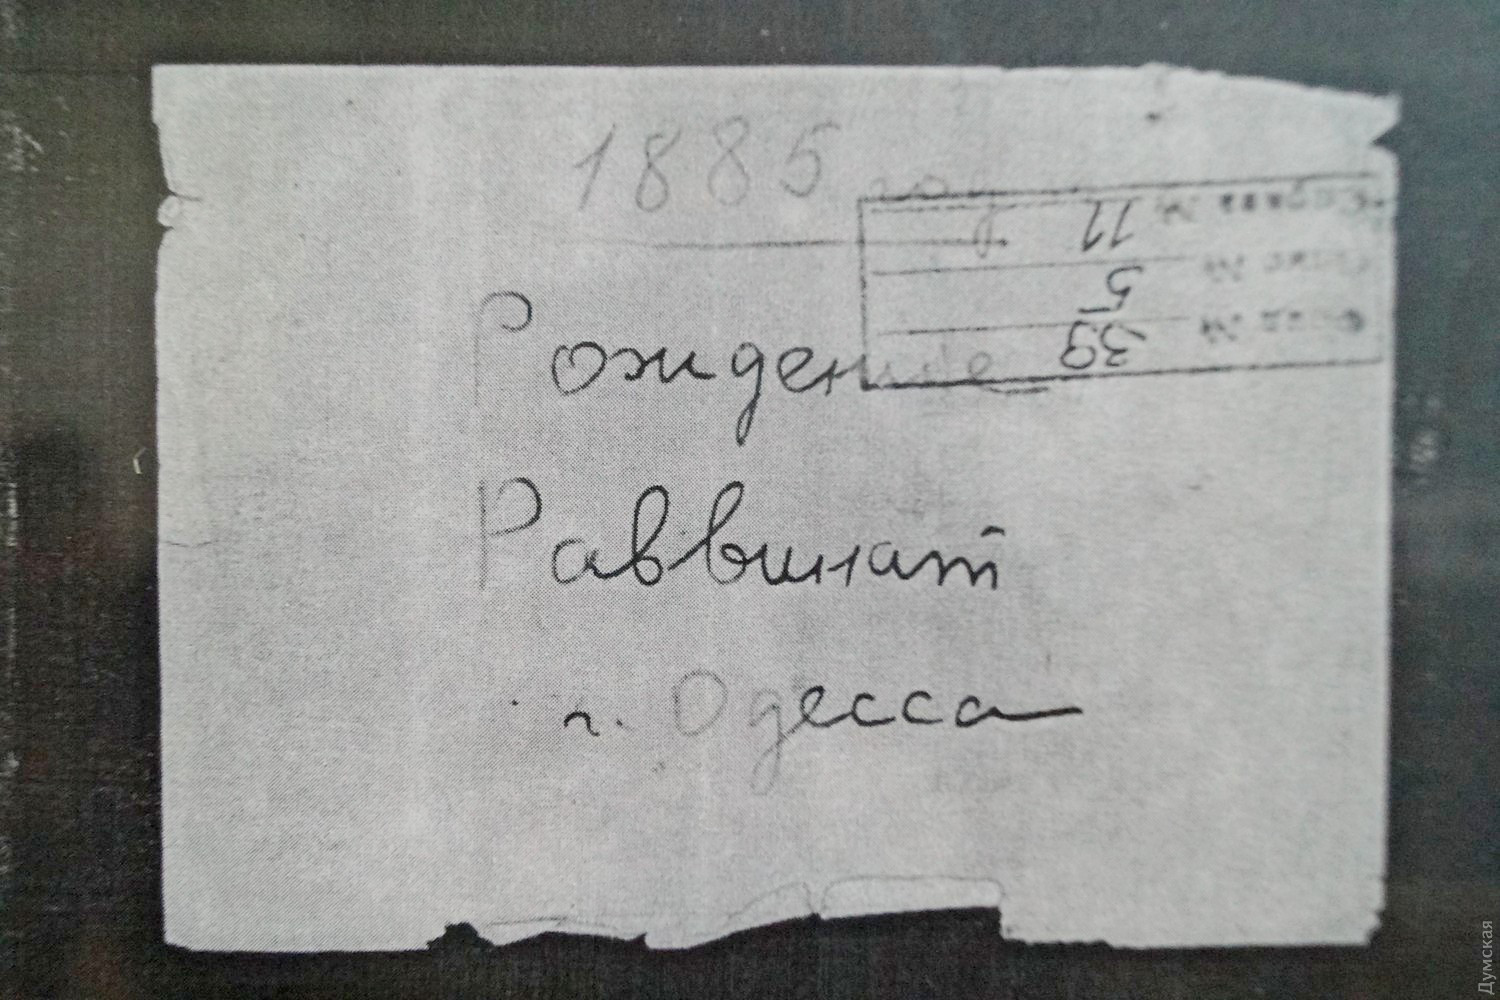 1885 году
Рождение
Раввинат
г. Одесса
Фонд № 39
Опис № 5
Справа № 11
Думская